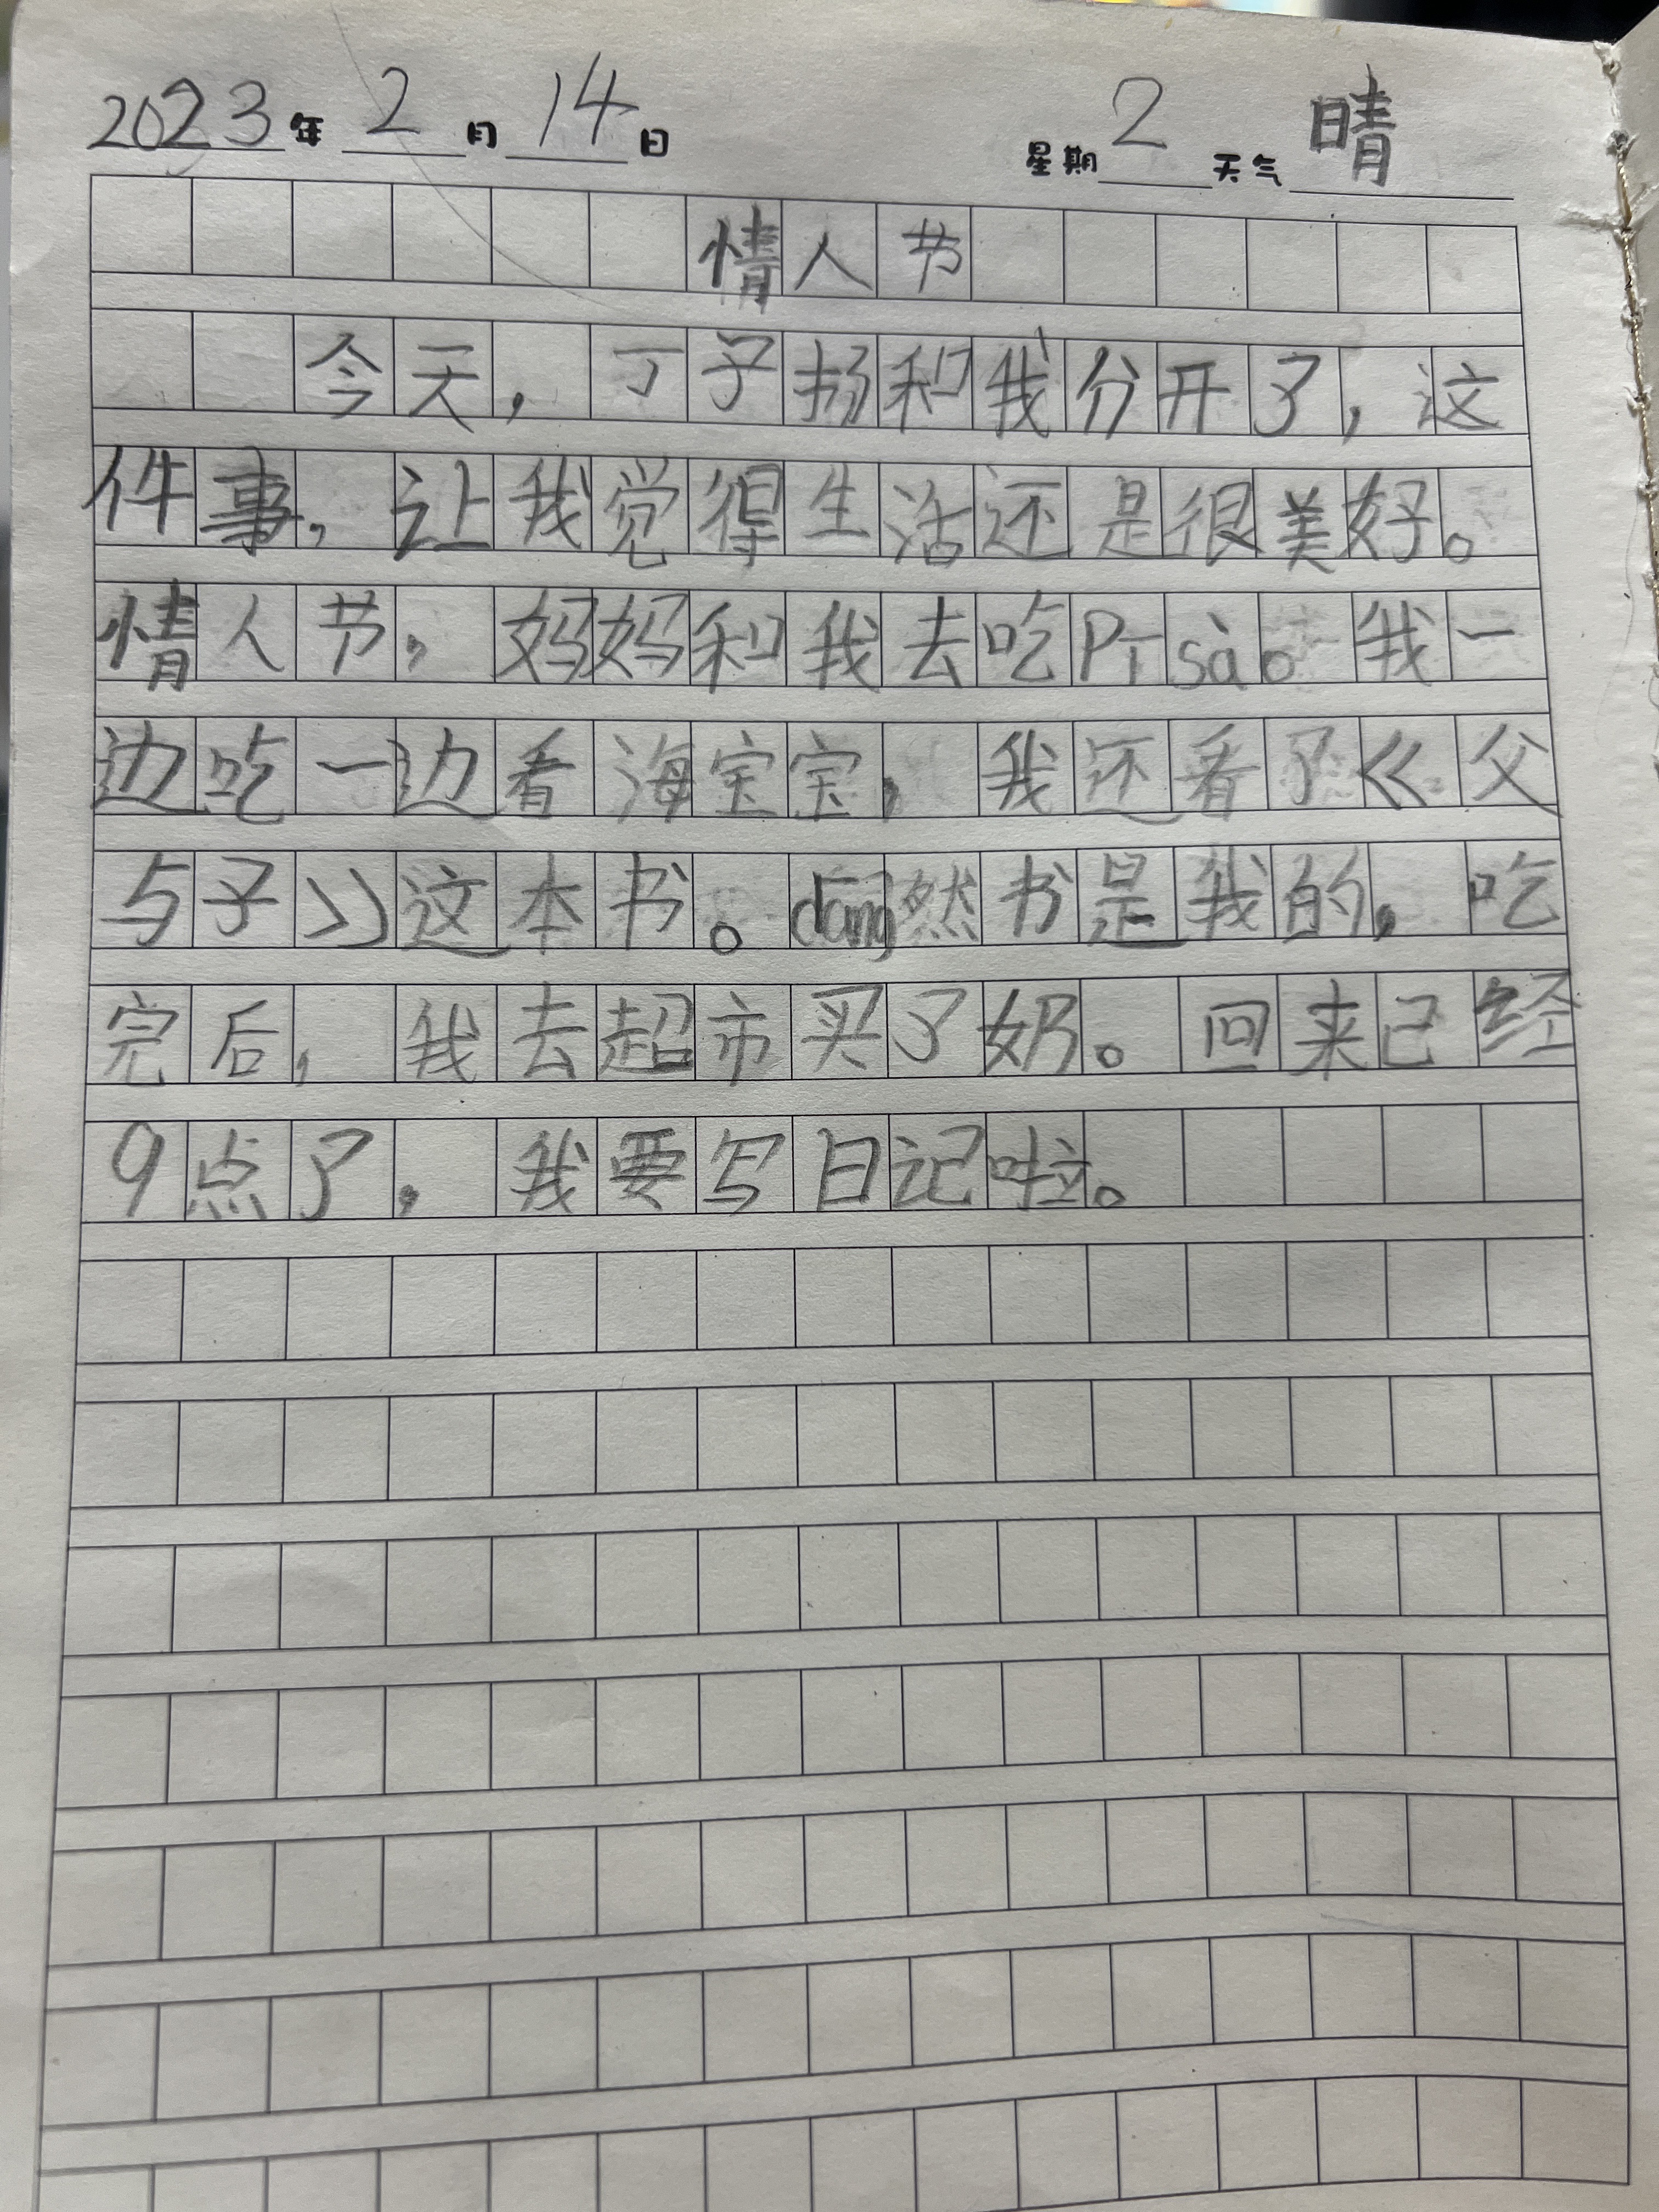 2023年 2 月 14 日 星期 2 天气 晴
情人节
今天，丁子扬和我分开了，这
件事，让我觉得生活还是很美好。
情人节，妈妈和我去吃Pī sà。我一
边吃一边看海宝宝，我还看了《父
与子》这本书。dāng然书是我的，吃
完后，我去超市买了奶。回来已经
9点了，我要写日记啦。